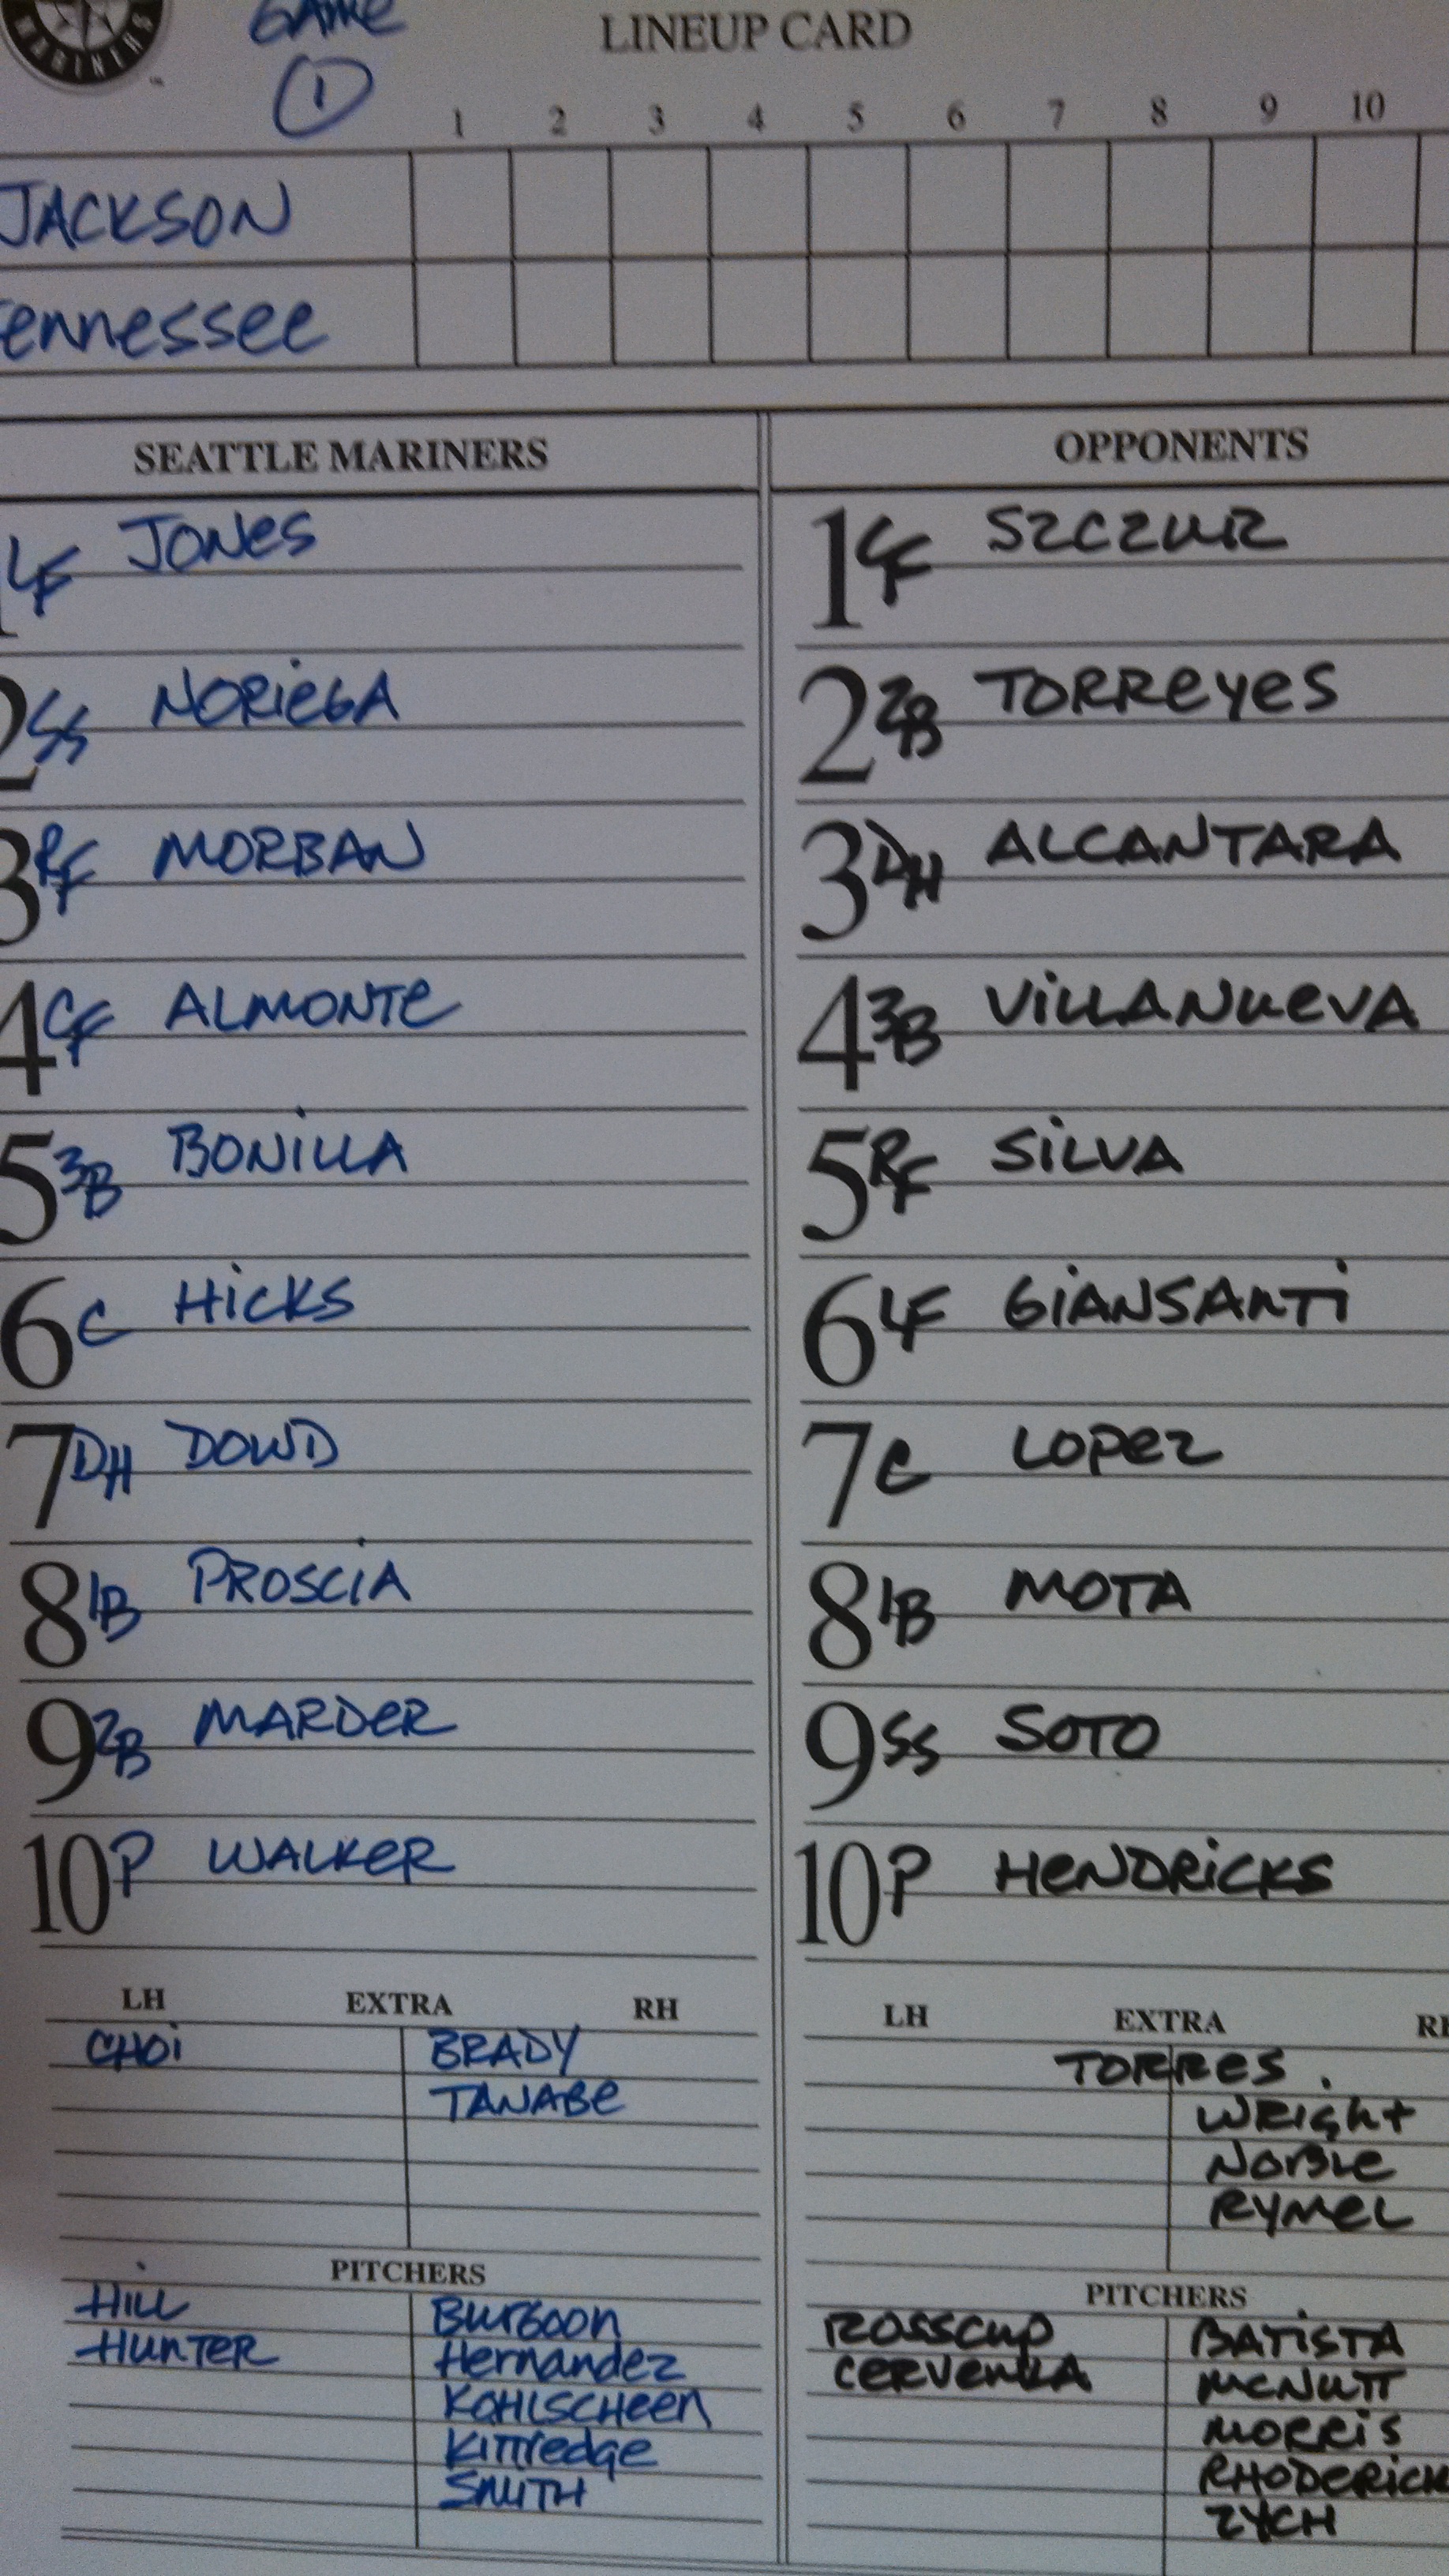 MARINERS
GAME
1
LINEUP CARD
1 2 3 4 5 6 7 8 9 10
JACKSON
Tennessee
SEATTLE MARINERS
1 LF JONES
2 SS NORIEGA
3 RF MORBAN
4 CF ALMONTE
5 3B BONILLA
6 C HICKS
7 DH DOWD
8 1B PROSCIA
9 2B MARDER
10 P WALKER
LH EXTRA RH
CHOI BRADY
TANABE
PITCHERS
HILL BURGOON
HUNTER Hernandez
KOHLSCHEEN
Kittredge
SMITH
OPPONENTS
1 CF SZCZUR
2 2B TORREYES
3 DH ALCANTARA
4 3B VILLANUEVA
5 RF SILVA
6 LF GIANSANTI
7 C LOPEZ
8 1B MOTA
9 SS SOTO
10 P HENDRICKS
LH EXTRA RH
TORRES
WRIGHT
NOBLE
RYMEL
PITCHERS
ROSSCUP BATISTA
CERVENKA MCNUTT
MORRIS
RHODERICK
ZYCH